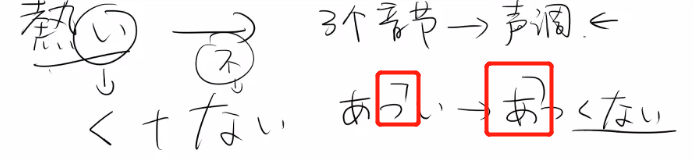 熱い → 不
く+ない
3个音节→声调←
あつい→あつくない